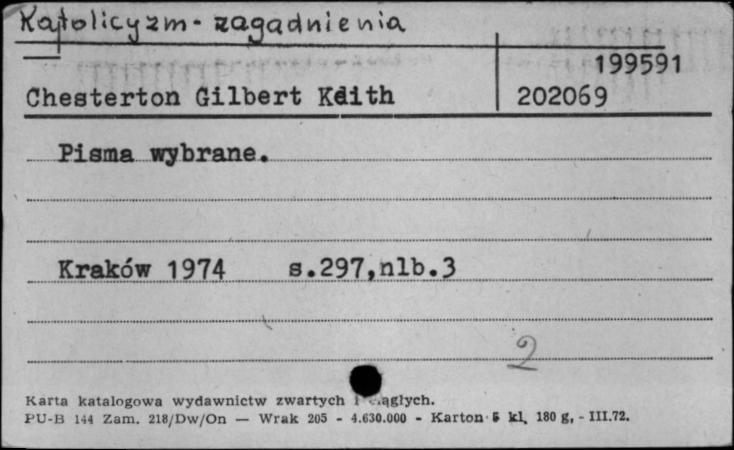 Katolicyzm - zagadnienia
199591
Chesterton Gilbert Keith 202069
Pisma wybrane.
Kraków 1974 s.297,nlb.3
2
Karta katalogowa wydawnictw zwartych i ciągłych.
PU-B 144 Zam. 218/Dw/On — Wrak 205 - 4.630.000 - Karton 5 kl. 180 g, - III.72.